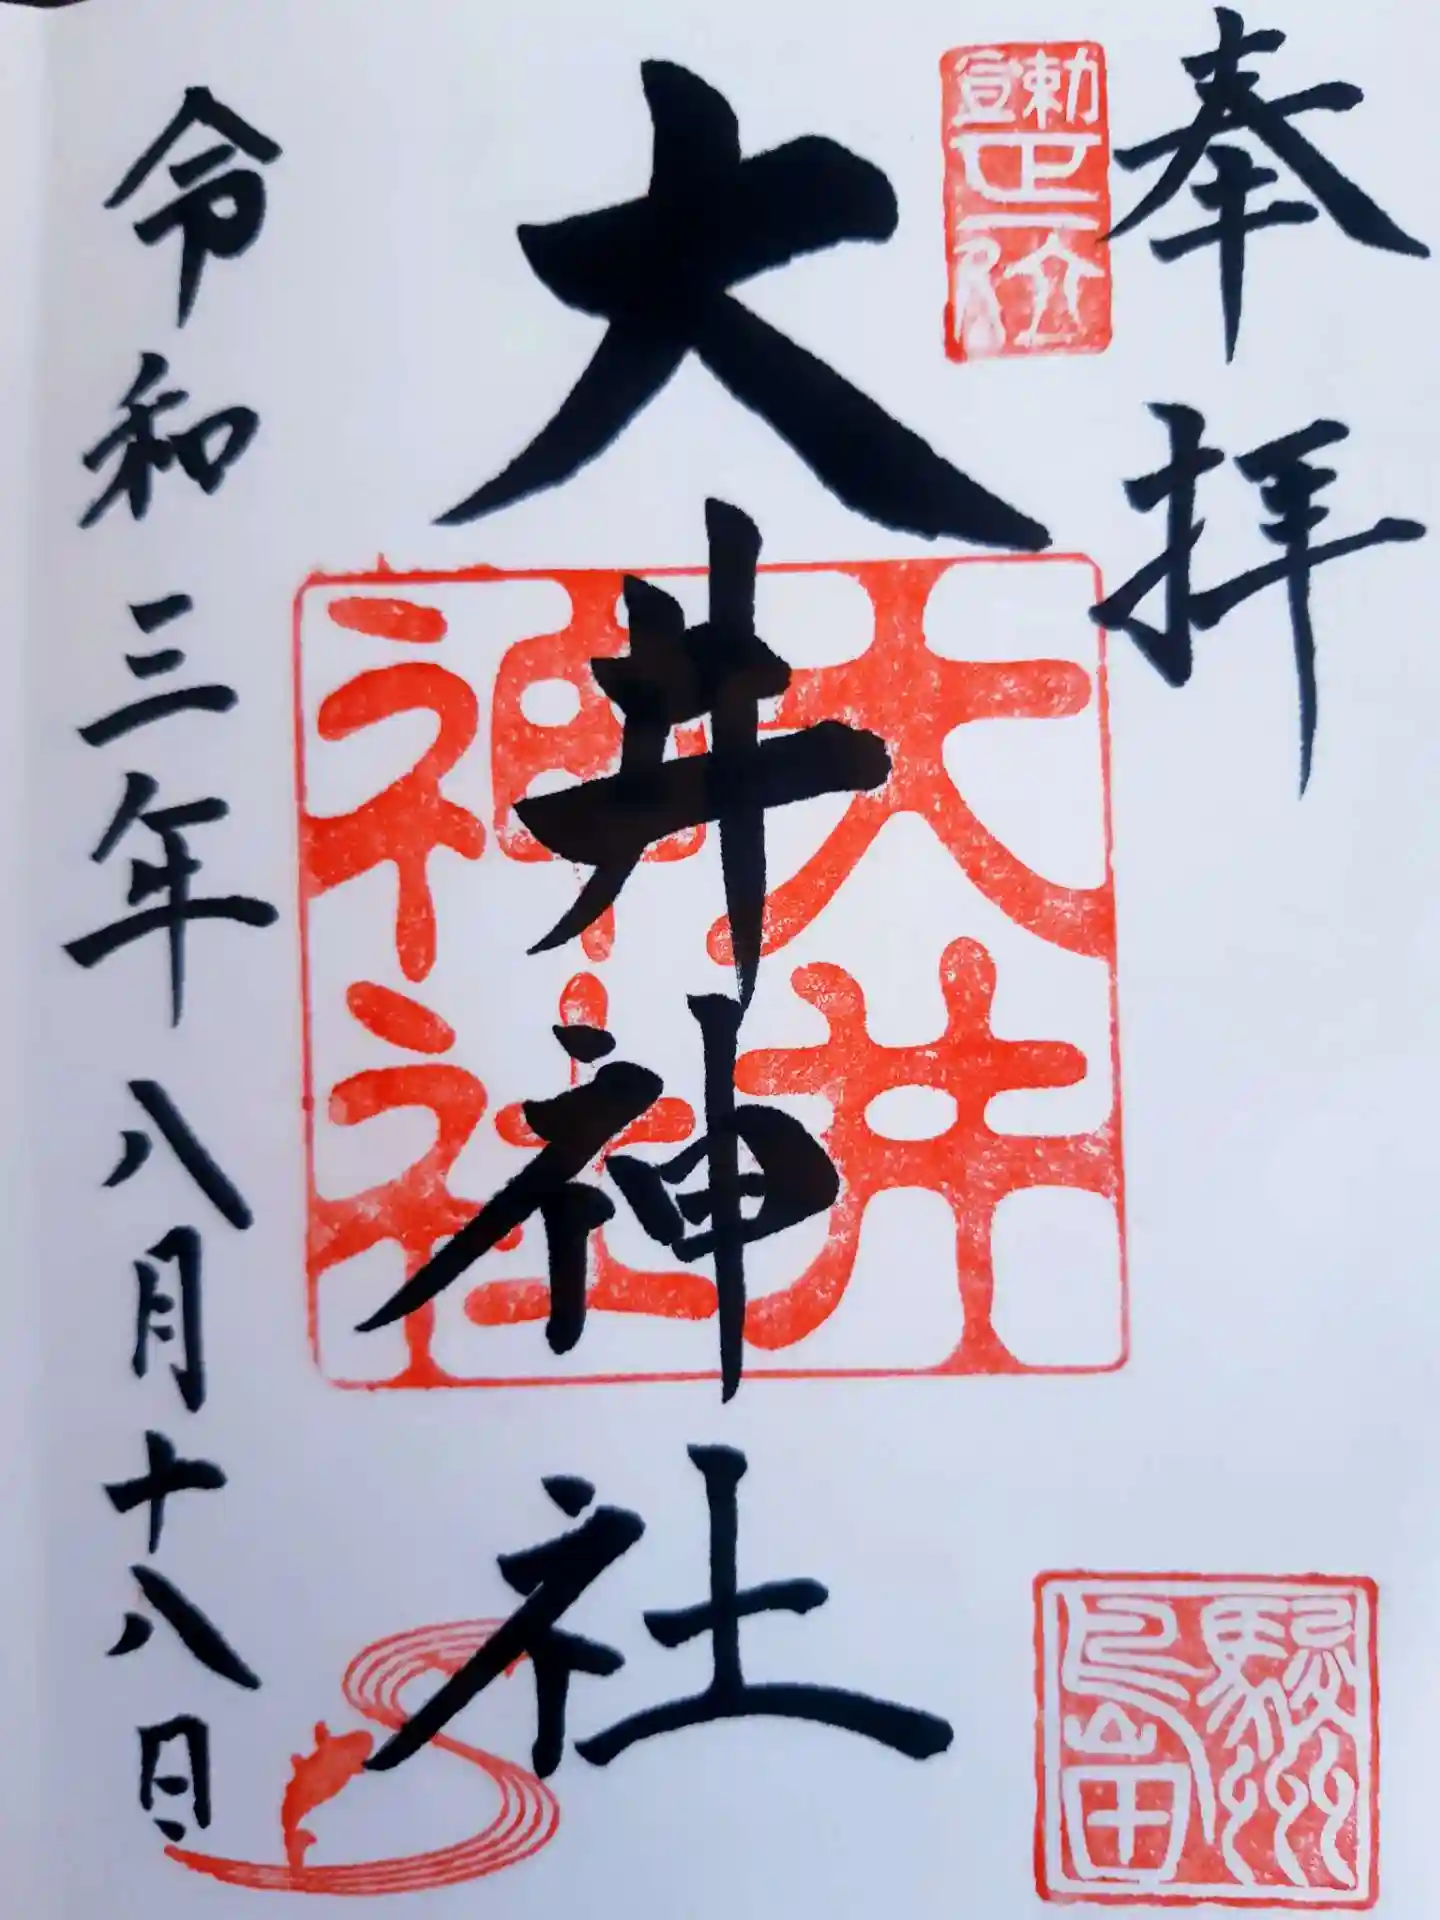 奉拝
勅宣
正一
位
大井神社
大井
神社
駿州
島田
令和三年八月十八日